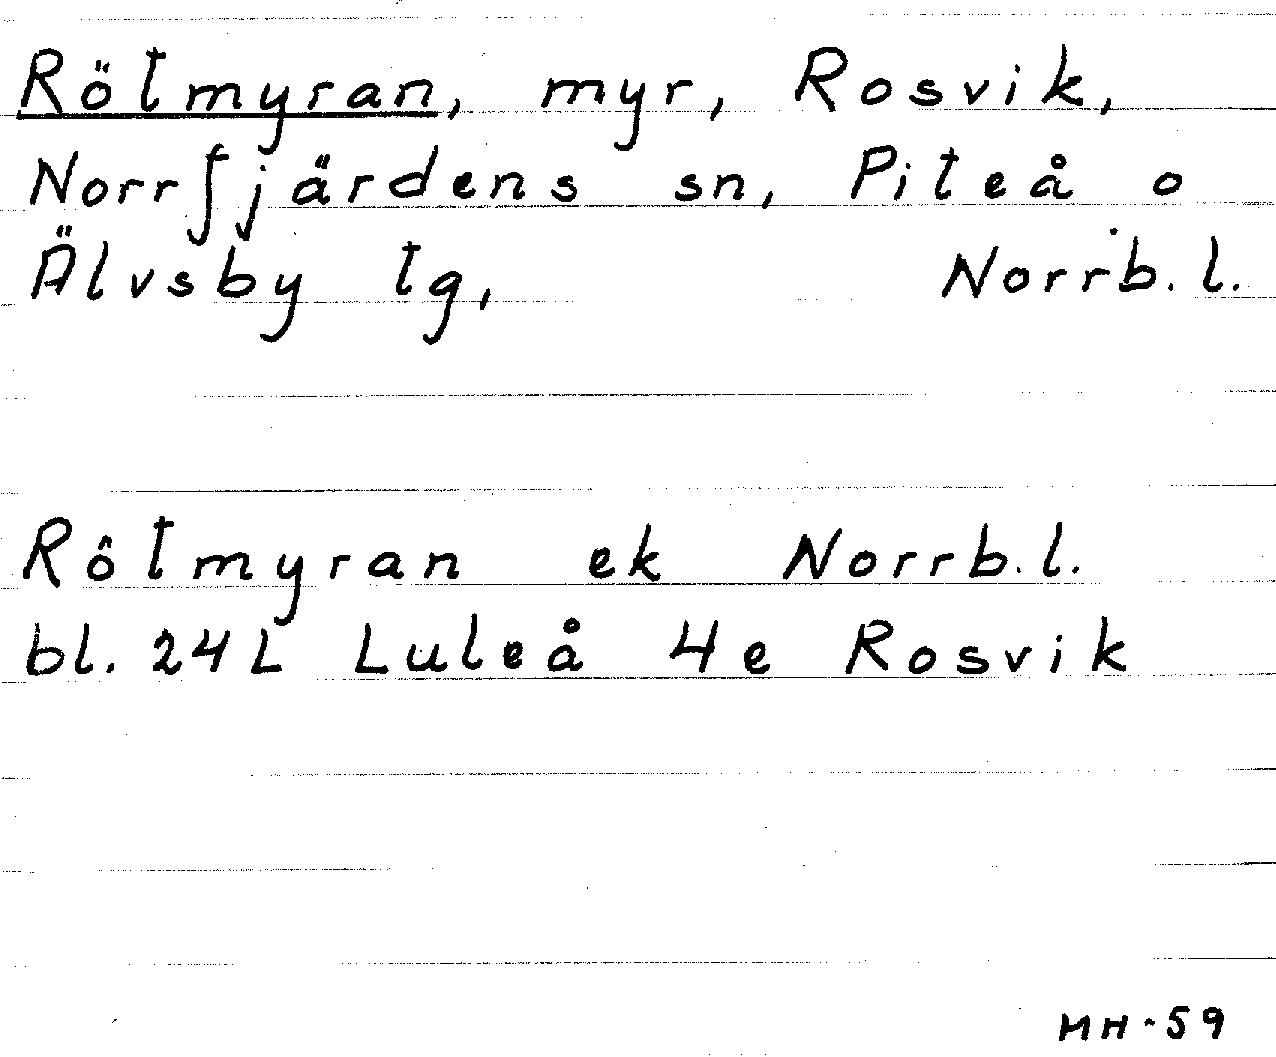 Rötmyran, myr, Rosvik,
Norrfjärdens sn, Piteå o
Älvsby tg, Norrb. l.
Rötmyran ek Norrb. l.
bl. 24L Luleå 4e Rosvik
MH-59